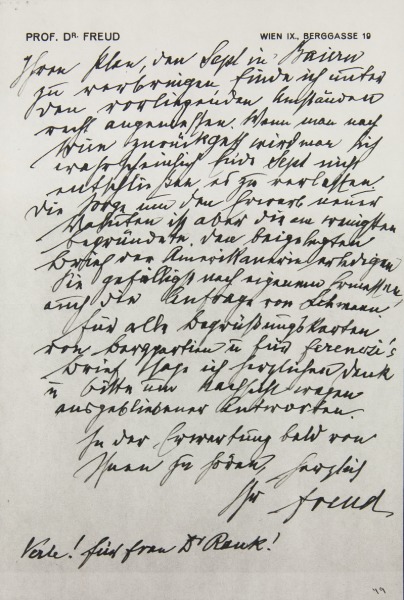 PROF. DR. FREUD WIEN IX., BERGGASSE 19
Ihren Plan, den Sept in Baiern
zu verbringen, finde ich unter
den vorliegenden Umständen
recht angemessen. Wenn man nach
Wien zurückgeht wird man sich
wahrscheinlich Ende Sept nicht
entschließen, es zu verlassen.
Die Sorge um den Erwerb neuer
Valuten ist aber die am wenigsten
begründete. Den beigelegten
Brief der Amerikanerin erledigen
Sie gefälligst nach eigenem Ermessen,
auch die Anfrage von Lehmann.
Für alle Begrüßungskarten
von Bergpartien u für Ferenczi's
Brief sage ich herzlichen Dank
u bitte um Nachsicht wegen
ausgebliebener Antworten.
In der Erwartung bald von
Ihnen zu hören, herzlich
Ihr Freud
für Frau Dr Rank!